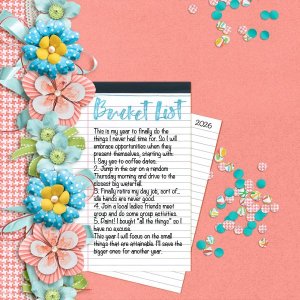 Bucket List
2026
This is my year to finally do the
things I never had time for. So I will
embrace opportunities when they
present themselves, starting with:
1. Say yes to coffee dates.
2. Jump in the car on a random
Thursday morning and drive to the
closest big waterfall.
3. Finally retire my day job, sort of...
idle hands are never good.
4. Join a local ladies friends meet
group and do some group activities.
5. Paint! I bought "all the things" so I
have no excuse.
This year I will focus on the small
things that are attainable. I'll save the
bigger ones for another year.